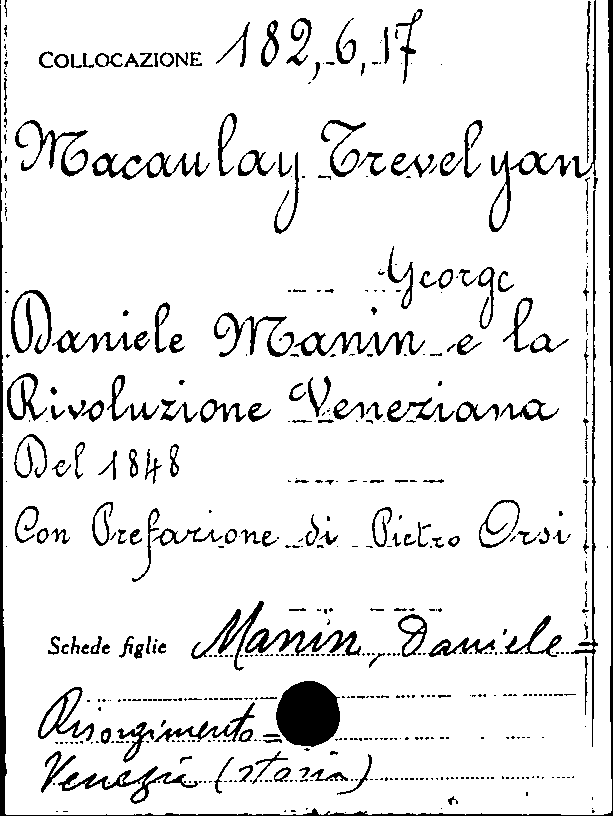 COLLOCAZIONE 182,6,17
Macaulay Trevelyan
George
Daniele Manin e la
Rivoluzione Veneziana
Del 1848
Con Prefazione di Pietro Orsi
Schede figlie Manin, Daniele =
Risorgimento =
Venezia (storia)